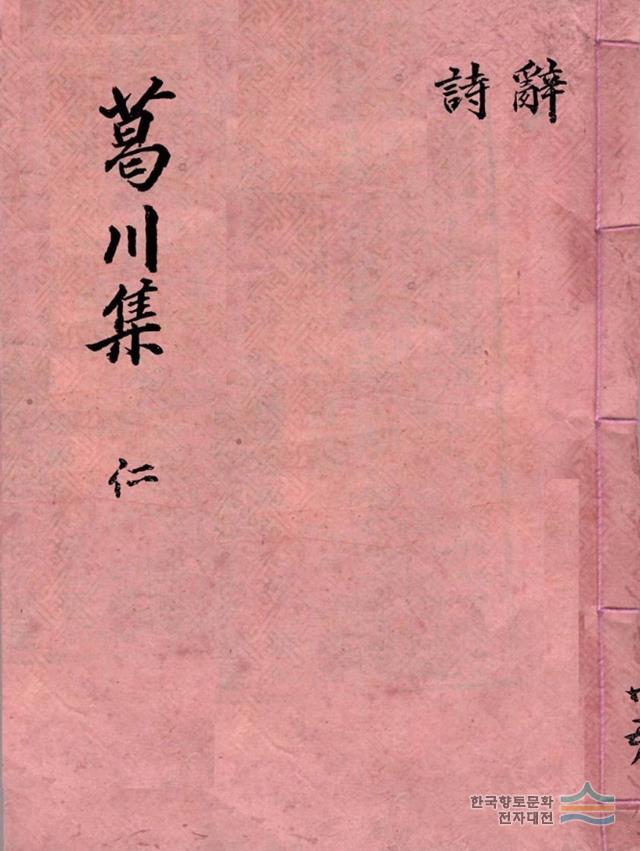 辭
詩
葛川集 仁
한국향토문화
전자대전